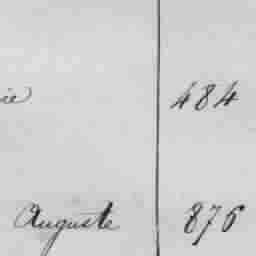 ie 484
Auguste 876